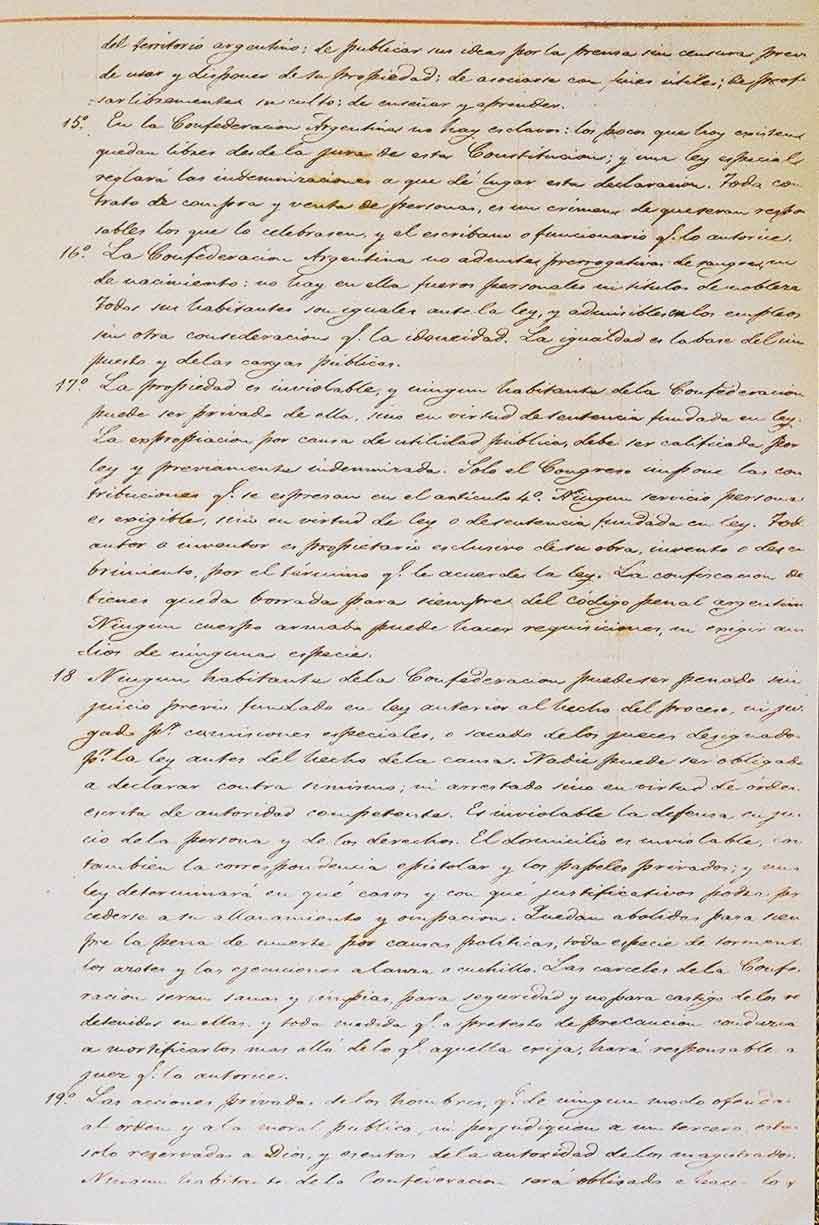 del territorio argentino; de publicar sus ideas por la prensa sin censura prev
de usar y disponer de su propiedad; de asociarse con fines útiles; de profe-
sar libremente su culto; de enseñar y aprender.
15.º En la Confederacion Argentina no hay esclavos: los pocos que hoy existen
quedan libres desde la jura de esta Constitucion; y una ley especial
reglará las indemnizaciones a que dé lugar esta declaracion. Todo con
trato de compra y venta de personas, es un crimen de que seran respon
sables los que lo celebrasen, y el escribano o funcionario q.º lo autorice.
16.º La Confederacion Argentina no admite prerrogativas de sangre, ni
de nacimiento: no hay en ella fueros personales ni titulos de nobleza
Todos sus habitantes son iguales ante la ley, y admisibles en los empleos
sin otra consideracion q.º la idoneidad. La igualdad es la base del im
puesto y de las cargas públicas.
17.º La propiedad es inviolable, y ningun habitante de la Confederacion
puede ser privado de ella, sino en virtud de sentencia fundada en ley.
La expropiacion por causa de utilidad pública, debe ser calificada por
ley y previamente indemnizada. Solo el Congreso impone las con
tribuciones q.º se espresan en el articulo 4.º Ningun servicio persona
es exigible, sino en virtud de ley o de sentencia fundada en ley. Tod
autor o inventor es propietario esclusivo de su obra, invento o descu
brimiento, por el término q.º le acuerde la ley. La confiscacion de
bienes queda borrada para siempre del código penal argentin
Ningun cuerpo armado puede hacer requisiciones, ni exigir au
lios de ninguna especie.
18 Ningun habitante de la Confederacion puede ser penado sin
juicio previo fundado en ley anterior al hecho del proceso, ni juz
gado p.r comisiones especiales, o sacado de los jueces designado
p.r la ley antes del hecho de la causa. Nadie puede ser obligado
a declarar contra si mismo; ni arrestado sino en virtud de órden
escrita de autoridad competente. Es inviolable la defensa en jui
cio de la persona y de los derechos. El domicilio es inviolable, co
tambien la correspondencia epistolar y los papeles privados; y una
ley determinará en qué casos y con qué justificativos podra pro
cederse a su allanamiento y ocupacion. Quedan abolidos para siem
pre la pena de muerte por causas politicas, toda especie de torment
los azotes y las ejecuciones a lanza o cuchillo. Las carceles de la Confe
racion seran sanas y limpias, para seguridad y no para castigo de los re
detenidos en ellas. y toda medida q.º a pretesto de precaucion conduzca
a mortificarlos mas allá de lo q.º aquella exija, hará responsable a
juez q.º la autorice.
19.º Las acciones privadas de los hombres, q.º de ningun modo ofenda
al órden y a la moral publica, ni perjudiquen a un tercero, están
solo reservadas a Dios, y esentas de la autoridad de los magistrados.
Ningun habitante de la Confederacion será obligado a hacer lo q